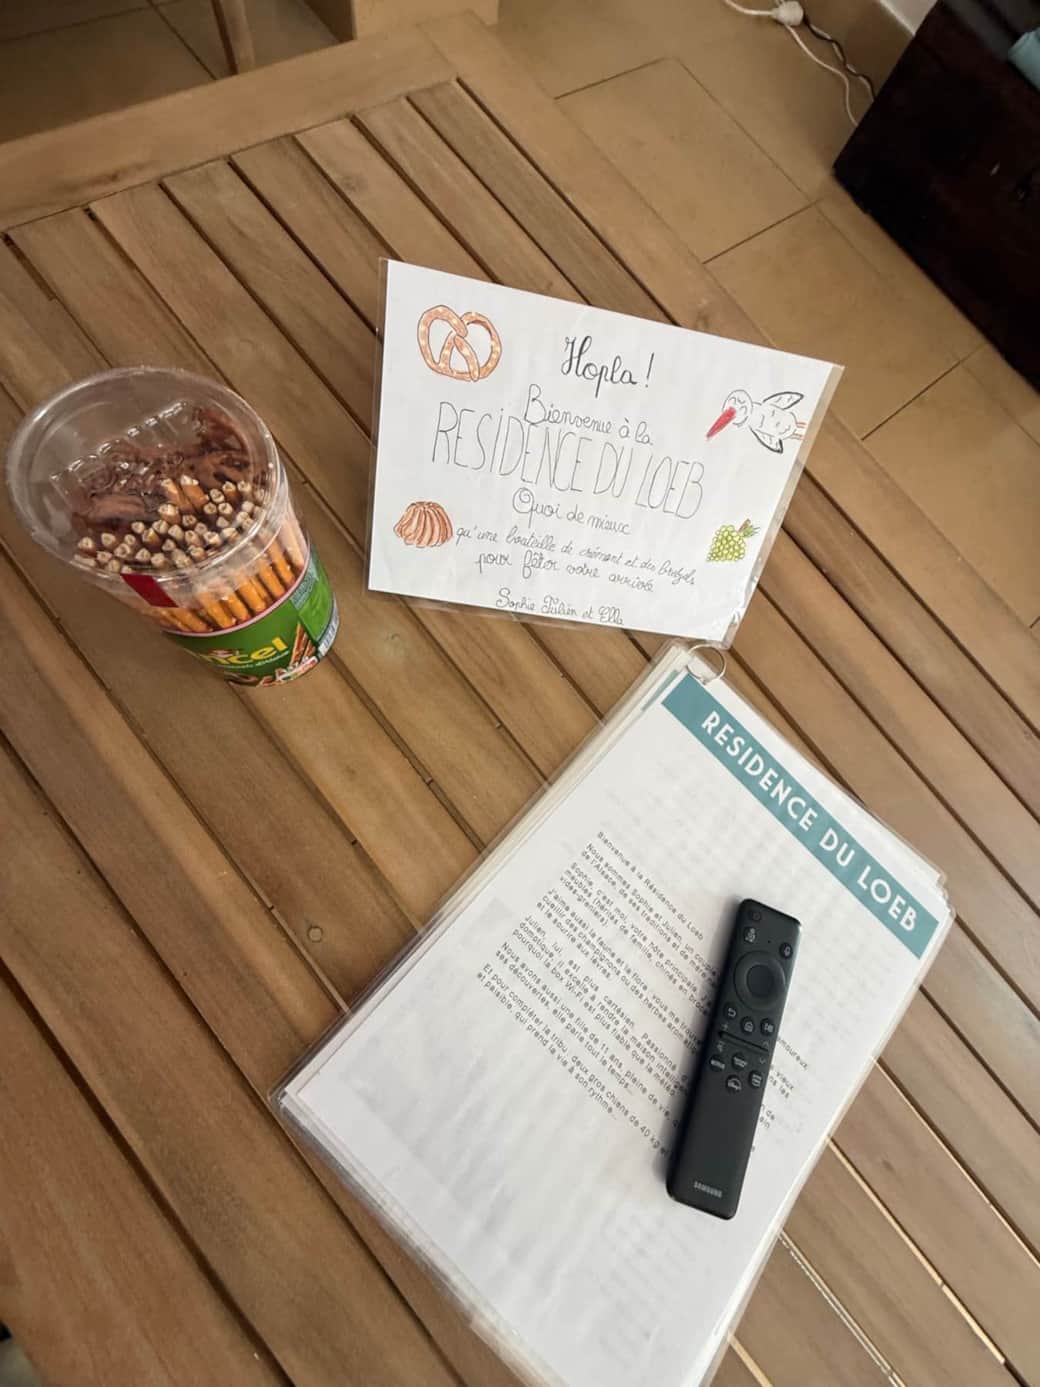 Hopla !
Bienvenue à la
RESIDENCE DU LOEB
Quoi de mieux
qu'une bouteille de crémant et des bretzels
pour fêter votre arrivée
Sophie, Julien et Ella
RESIDENCE DU LOEB
Bienvenue à la Résidence du Loeb
Nous sommes Sophie et Julien, un couple amoureux
de l'Alsace, de ses traditions et de
Sophie, c'est moi, votre hôte principale. vieux
meubles (hérités de famille, chinés en les
vides-greniers).
J'aime aussi la faune et la flore, vous me
cueillir des champignons ou des herbes
et le sourire aux lèvres.
Julien, lui, est plus cartésien. Passionné de
domotique, il excelle à rendre la maison
pourquoi la box Wi-Fi est plus fiable que la météo.
Nous avons aussi une fille de 11 ans, pleine de vie,
ses découvertes, elle parle tout le temps...
Et pour compléter la tribu : deux gros chiens de 40 kg
et paisible, qui prend la vie à son rythme...
SAMSUNG